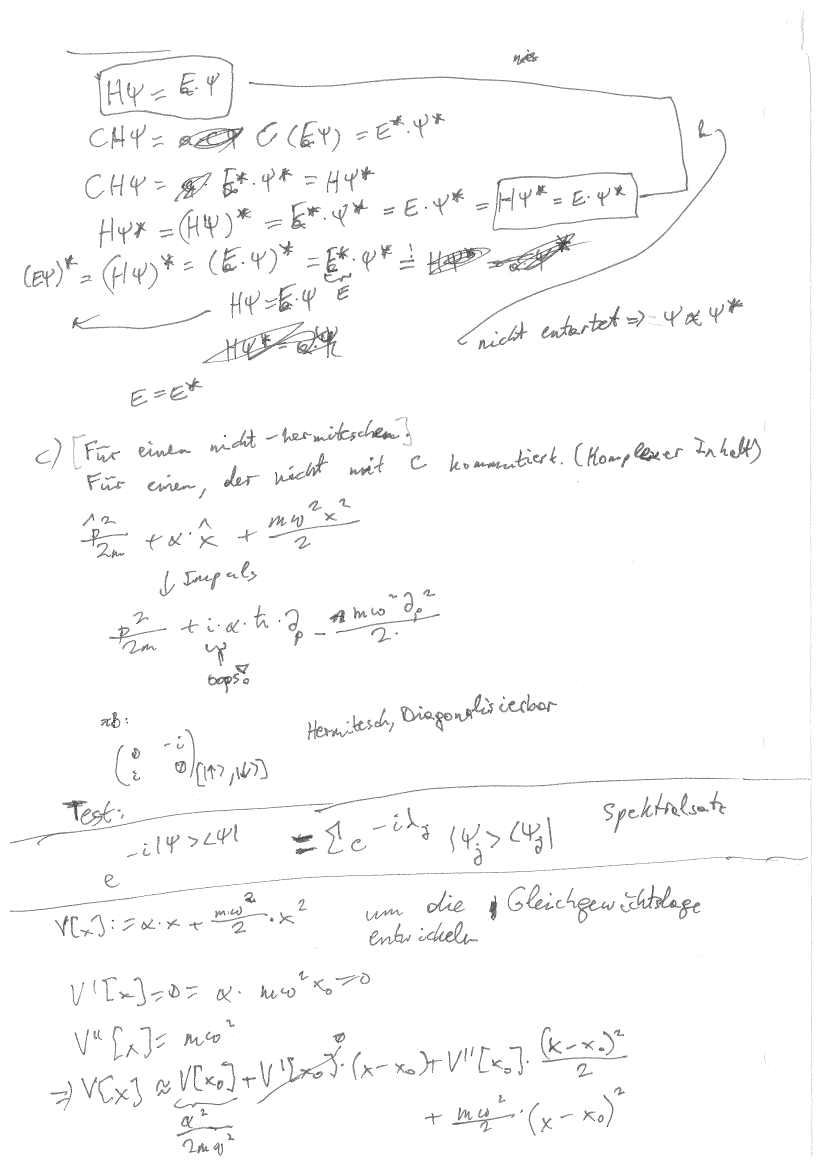 HΨ = E·Ψ
CHΨ = C(EΨ) = E*·Ψ*
CHΨ = E*·Ψ* = HΨ*
HΨ* = (HΨ)* = E*·Ψ* = E·Ψ* = HΨ* = E·Ψ*
(EΨ)* = (HΨ)* = (E·Ψ)* = E*·Ψ* =
HΨ = E·Ψ E
nicht entartet ⇒ Ψ ∝ Ψ*
E = E*
c) [Für einen nicht-hermiteschen.]
Für einen, der nicht mit C kommutiert. (Komplexer Inhalt)
p̂²/2m + α·x̂ + mω²x²/2
↓ Impuls
p²/2m + i·α·ħ·∂ₚ - mω²∂ₚ²/2.
oops!
zB:
(0 -i
i 0)[|↑>,|↓>]
Hermitesch, Diagonalisierbar
Test:
e^(-i|Ψ><Ψ|) = Σ e^(-iλⱼ) |Ψⱼ><Ψⱼ| Spektralsatz
V[x] := α·x + mω²/2·x² um die Gleichgewichtslage
entwickeln
V'[x] = 0 = α· mω²x₀ = 0
V''[x] = mω²
⇒ V[x] ≈ V[x₀] + V'[x₀]·(x-x₀) + V''[x₀]·(x-x₀)²/2
α²/2mω² + mω²/2·(x-x₀)²